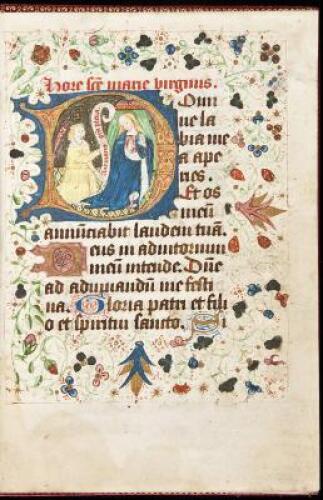 Hore scē marie virginis.
Domi
ne la
bia me
a ape
ries.
Et os
meū
annūciabit laudem tuā.
Deus in adiutorium
meū intende. Dn̄e
ad adiuuandū me festi
na. Gloria patri et fili
o et spiritui sancto. Si